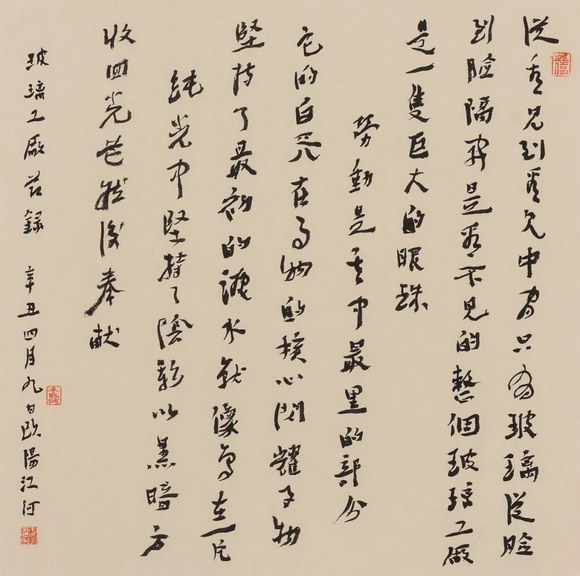 從看見到看見中間只有玻璃從臉
到臉隔開是看不見的整個玻璃工廠
是一隻巨大的眼珠
勞動是其中最黑的部分
它的白天在事物的核心閃耀事物
堅持了最初的淚水就像鳥在一片
純光中堅持了陰影以黑暗方
收回光芒然後奉獻
玻璃工廠節錄 辛丑四月九日歐陽江河